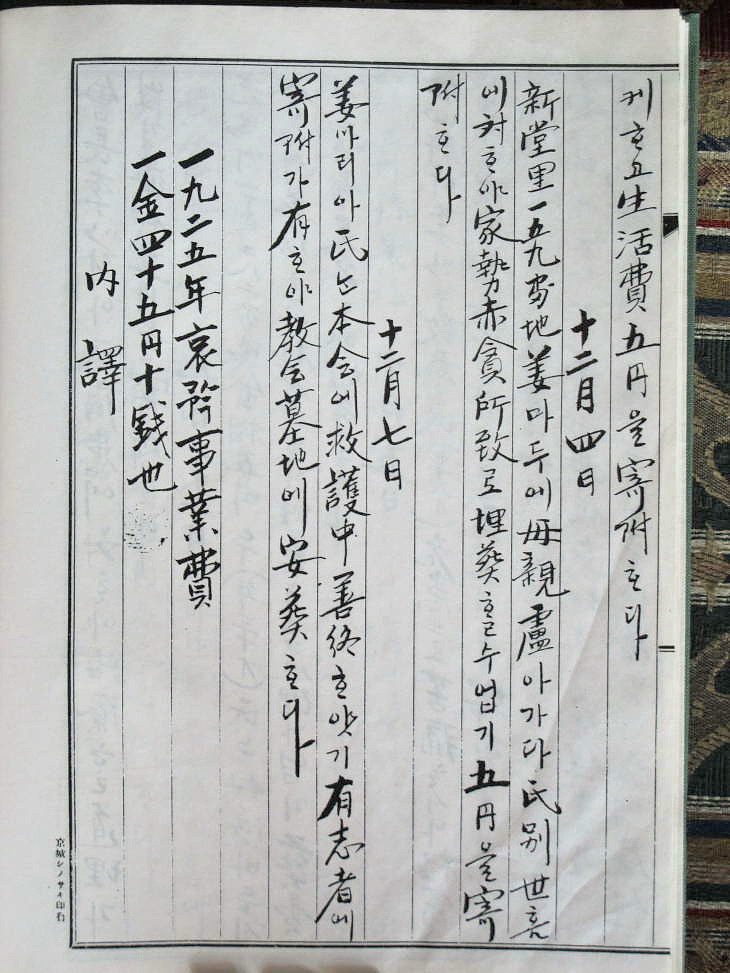 케ᄒᆞ고生活費五円을寄附ᄒᆞ다
十二月四日
新堂里一五九番地姜마두에母親盧아가다氏別世ᄒᆞᆷ
에対ᄒᆞ야家勢赤貧所致로埋葬ᄒᆞᆯ수업기五円을寄
附ᄒᆞ다
十二月七日
姜마리아氏는本会에救護中善終ᄒᆞ얏기有志者에
寄附가有ᄒᆞ야教会墓地에安葬ᄒᆞ다
一九二五年哀矜事業費
一金四十五円十銭也
内譯
京城シノサキ印行